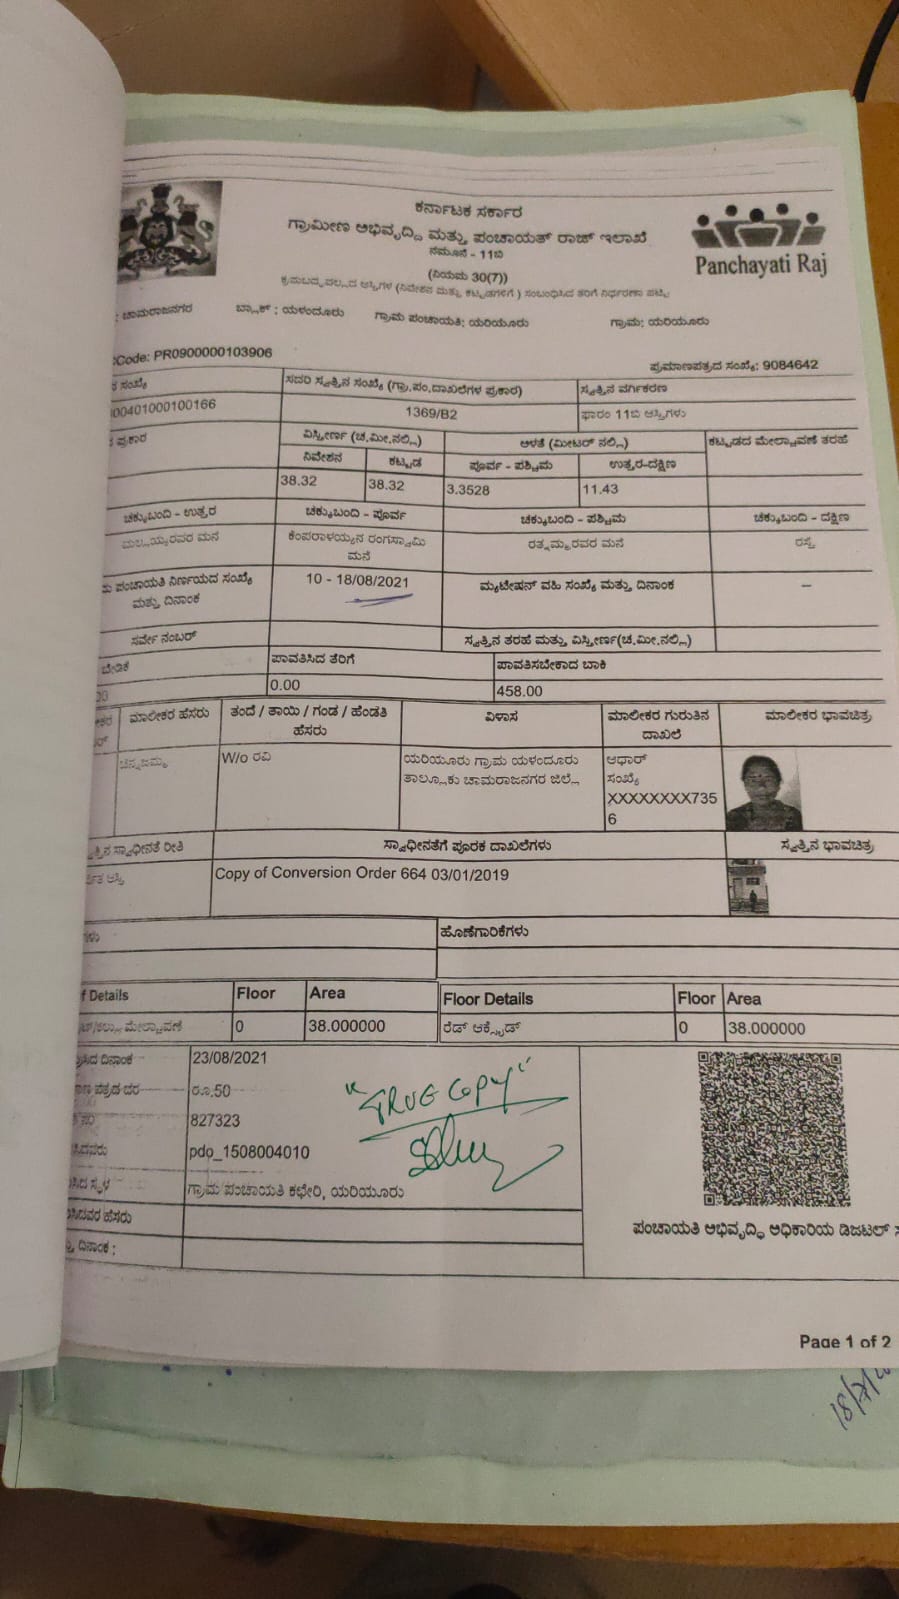 ಕರ್ನಾಟಕ ಸರ್ಕಾರ
ಗ್ರಾಮೀಣ ಅಭಿವೃದ್ಧಿ ಮತ್ತು ಪಂಚಾಯತ್ ರಾಜ್ ಇಲಾಖೆ
ನಮೂನೆ - 11ಬಿ
(ನಿಯಮ 30(7))
ಕ್ರಮಬದ್ಧವಲ್ಲದ ಆಸ್ತಿಗಳ (ನಿವೇಶನ ಮತ್ತು ಕಟ್ಟಡಗಳಿಗೆ ) ಸಂಬಂಧಿಸಿದ ತೆರಿಗೆ ನಿರ್ಧರಣಾ ಪಟ್ಟಿ
Panchayati Raj
: ಚಾಮರಾಜನಗರ ಬ್ಲಾಕ್ : ಯಳಂದೂರು ಗ್ರಾಮ ಪಂಚಾಯತಿ: ಯರಿಯೂರು ಗ್ರಾಮ: ಯರಿಯೂರು
Code: PR0900000103906 ಪ್ರಮಾಣಪತ್ರದ ಸಂಖ್ಯೆ: 9084642
ಸಂಖ್ಯೆ ಸದರಿ ಸ್ವತ್ತಿನ ಸಂಖ್ಯೆ (ಗ್ರಾ.ಪಂ.ದಾಖಲೆಗಳ ಪ್ರಕಾರ) ಸ್ವತ್ತಿನ ವರ್ಗೀಕರಣ
00401000100166 1369/B2 ಫಾರಂ 11ಬಿ ಆಸ್ತಿಗಳು
ಪ್ರಕಾರ ವಿಸ್ತೀರ್ಣ (ಚ.ಮೀ.ನಲ್ಲಿ) ಅಳತೆ (ಮೀಟರ್ ನಲ್ಲಿ) ಕಟ್ಟಡದ ಮೇಲ್ಛಾವಣೆ ತರಹೆ
ನಿವೇಶನ ಕಟ್ಟಡ ಪೂರ್ವ - ಪಶ್ಚಿಮ ಉತ್ತರ-ದಕ್ಷಿಣ
38.32 38.32 3.3528 11.43
ಚಕ್ಕುಬಂದಿ - ಉತ್ತರ ಚಕ್ಕುಬಂದಿ - ಪೂರ್ವ ಚಕ್ಕುಬಂದಿ - ಪಶ್ಚಿಮ ಚಕ್ಕುಬಂದಿ - ದಕ್ಷಿಣ
ಮಲ್ಲಯ್ಯರವರ ಮನೆ ಕೆಂಪರಾಳಯ್ಯನ ರಂಗಸ್ವಾಮಿ ರತ್ನಮ್ಮರವರ ಮನೆ ರಸ್ತೆ
ಮನೆ
ಪಂಚಾಯತಿ ನಿರ್ಣಯದ ಸಂಖ್ಯೆ 10 - 18/08/2021 ಮ್ಯುಟೇಷನ್ ವಹಿ ಸಂಖ್ಯೆ ಮತ್ತು ದಿನಾಂಕ –
ಮತ್ತು ದಿನಾಂಕ
ಸರ್ವೇ ನಂಬರ್ ಸ್ವತ್ತಿನ ತರಹೆ ಮತ್ತು ವಿಸ್ತೀರ್ಣ(ಚ.ಮೀ.ನಲ್ಲಿ)
ಬೇಡಿಕೆ ಪಾವತಿಸಿದ ತೆರಿಗೆ ಪಾವತಿಸಬೇಕಾದ ಬಾಕಿ
0.00 458.00
ಮಾಲೀಕರ ಹೆಸರು ತಂದೆ / ತಾಯಿ / ಗಂಡ / ಹೆಂಡತಿ ವಿಳಾಸ ಮಾಲೀಕರ ಗುರುತಿನ ಮಾಲೀಕರ ಭಾವಚಿತ್ರ
ಹೆಸರು ದಾಖಲೆ
ಚಿನ್ನಜಮ್ಮ W/o ರವಿ ಯರಿಯೂರು ಗ್ರಾಮ ಯಳಂದೂರು ಆಧಾರ್
ತಾಲ್ಲೂಕು ಚಾಮರಾಜನಗರ ಜಿಲ್ಲೆ ಸಂಖ್ಯೆ
XXXXXXXX735
6
ಸ್ವಾಧೀನತೆ ರೀತಿ ಸ್ವಾಧೀನತೆಗೆ ಪೂರಕ ದಾಖಲೆಗಳು ಸ್ವತ್ತಿನ ಭಾವಚಿತ್ರ
ಆಸ್ತಿ Copy of Conversion Order 664 03/01/2019
ಹೊಣೆಗಾರಿಕೆಗಳು
f Details Floor Area Floor Details Floor Area
ಮೇಲ್ಛಾವಣಿ 0 38.000000 ರೆಡ್ ಆಕ್ಸೈಡ್ 0 38.000000
ದಿನಾಂಕ 23/08/2021
ಪತ್ರದ ದರ ರೂ.50
"TRUE COPY"
827323
pdo_1508004010
ಸ್ಥಳ ಗ್ರಾಮ ಪಂಚಾಯತಿ ಕಛೇರಿ, ಯರಿಯೂರು
ಹೆಸರು
ದಿನಾಂಕ :
ಪಂಚಾಯತಿ ಅಭಿವೃದ್ಧಿ ಅಧಿಕಾರಿಯ ಡಿಜಿಟಲ್
Page 1 of 2